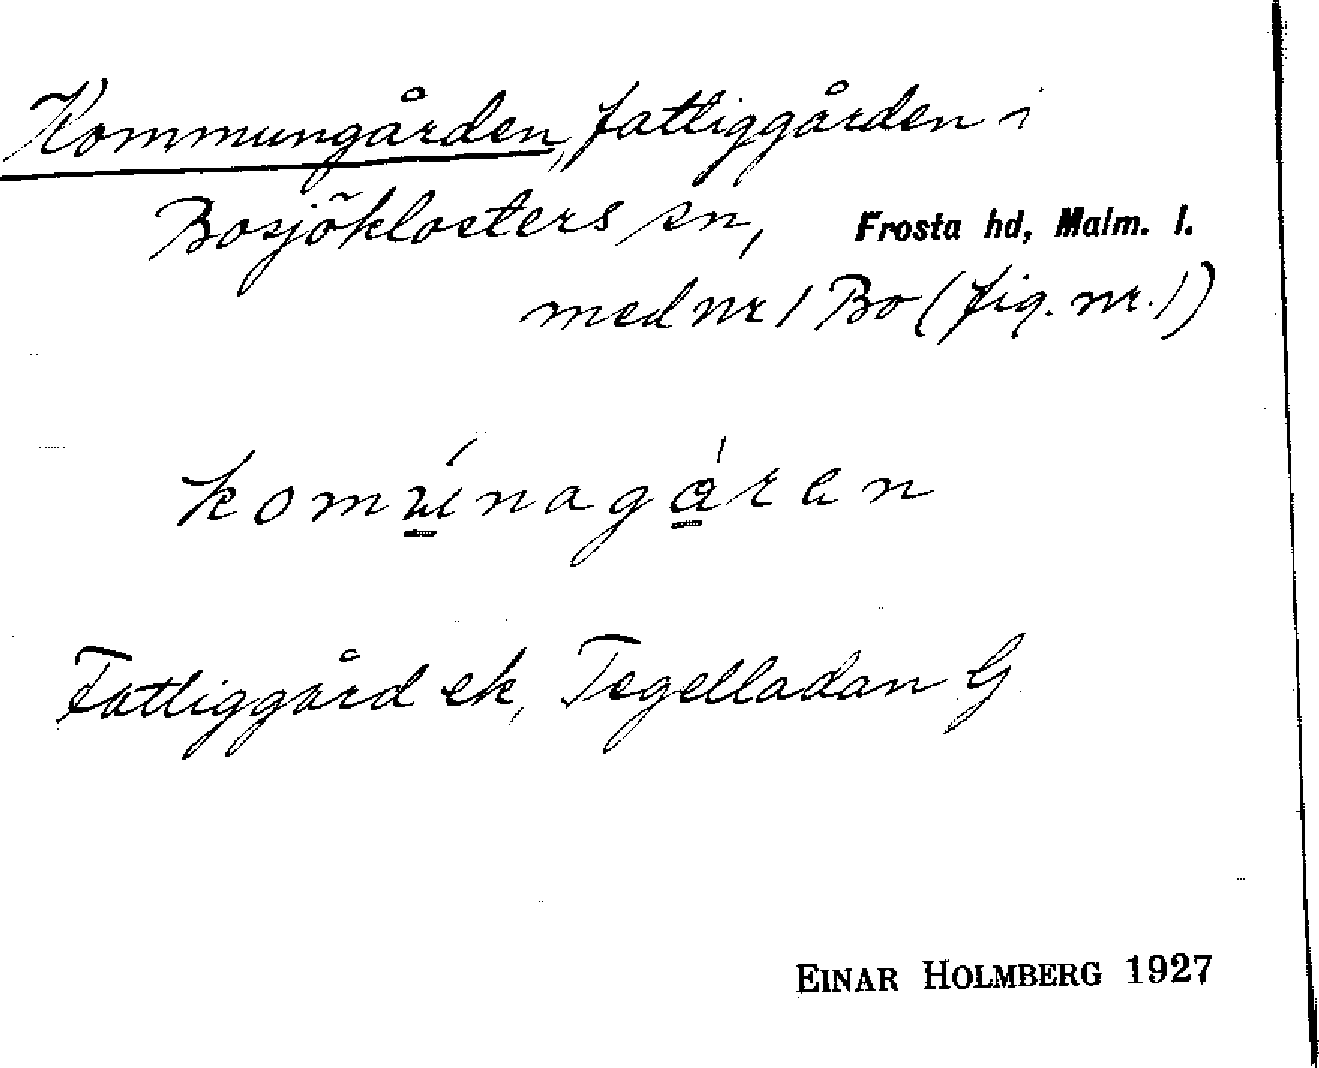 Kommungården, fattiggården i
Bosjöklosters sn, Frosta hd, Malm. l.
med nr 1 Bo (fig. nr. 1)
komúnagåren
Fattiggård ek, Tegelladan G
EINAR HOLMBERG 1927